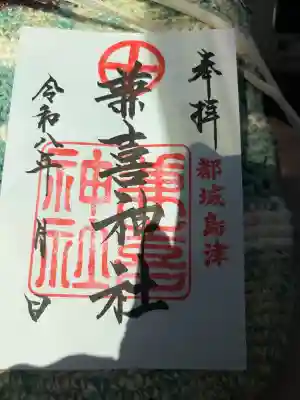 奉拝
都城島津
兼喜神社
兼喜
神社
令和八年 月 日